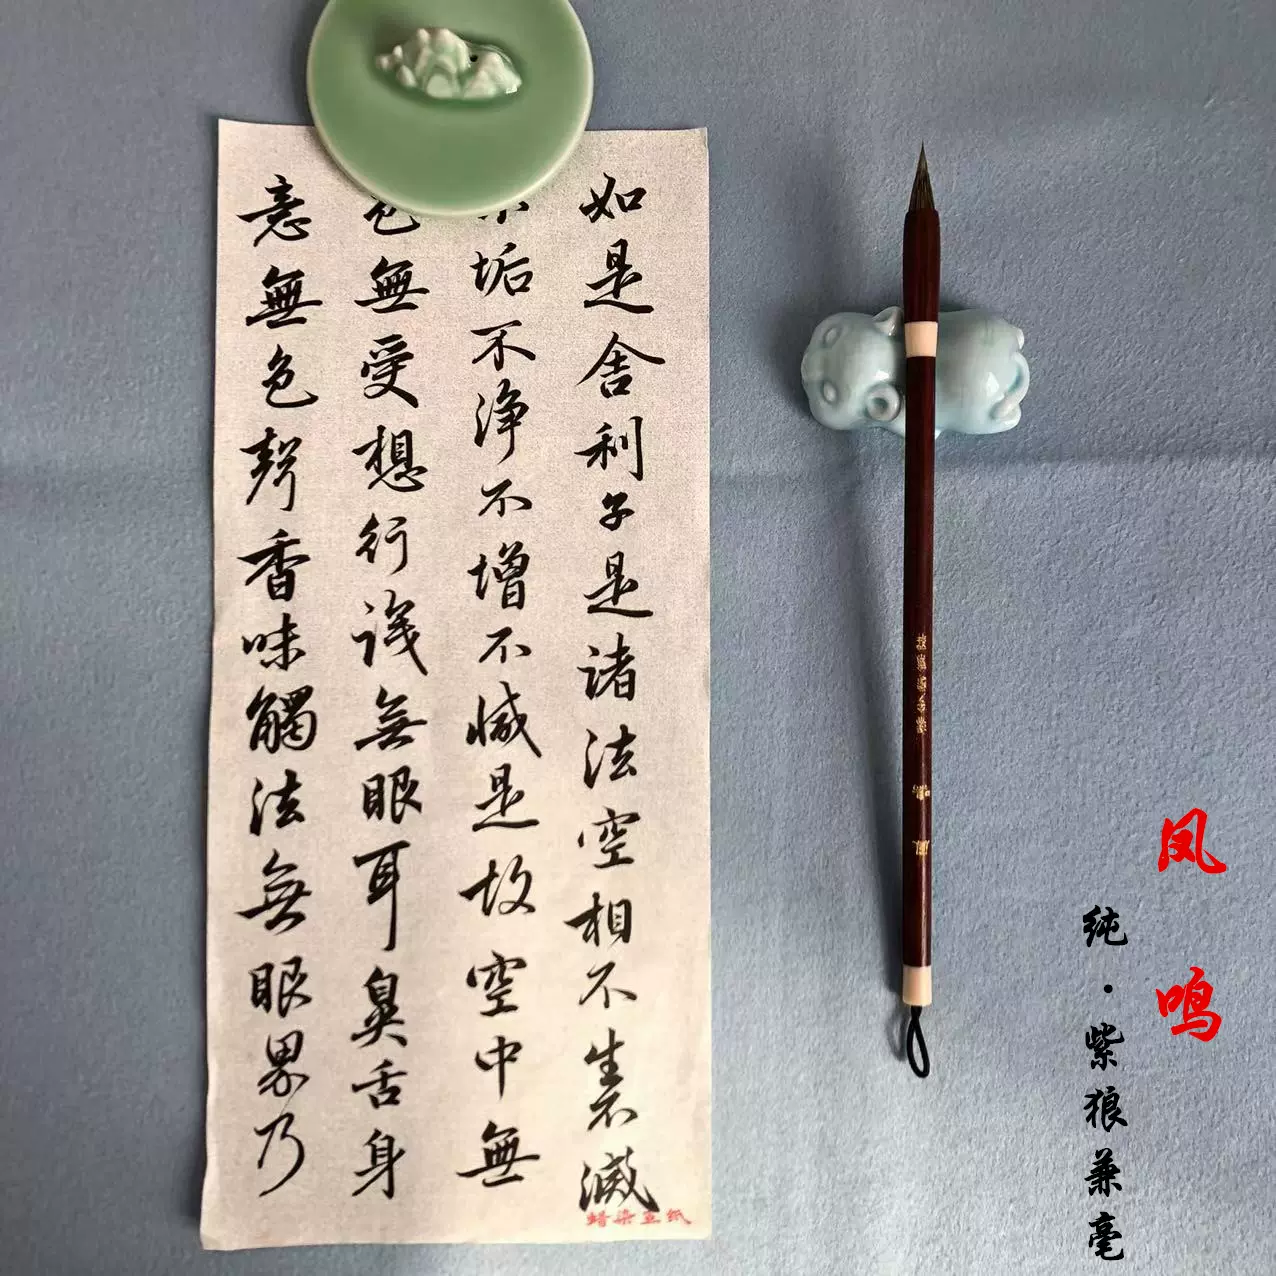 凤鸣
纯·紫狼兼毫
如是舍利子是諸法空相不生不滅
不垢不淨不增不減是故空中無
色無受想行識無眼耳鼻舌身
意無色聲香味觸法無眼界乃
蜡染宣纸